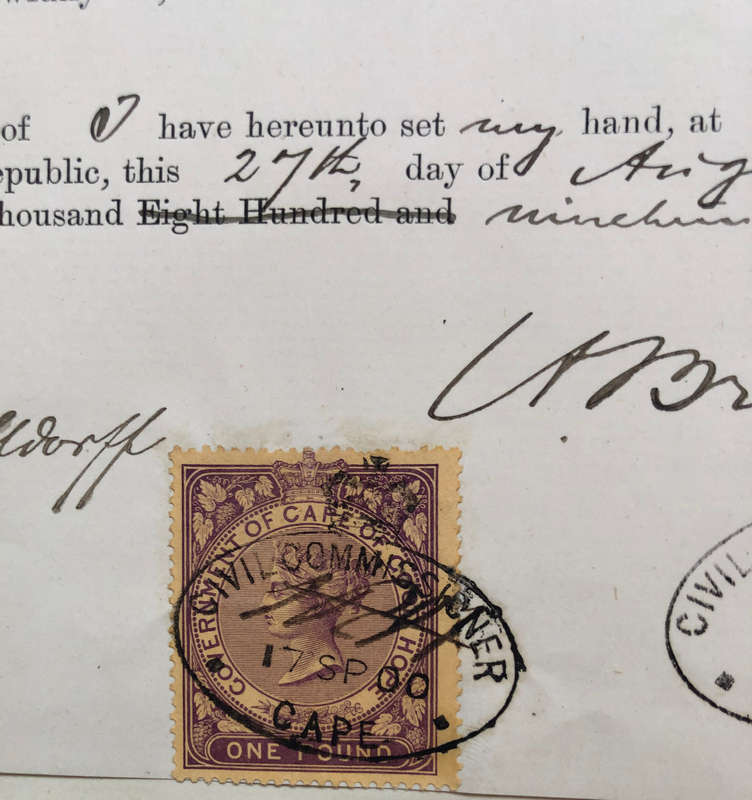 of I have hereunto set my hand, at
epublic, this 27th, day of Aug
housand Eight Hundred and
A. Br
ldorff
GOVERNMENT OF CAPE OF GOOD HOPE
CIVIL COMMISSIONER
17 SP 00
CAPE.
ONE POUND
CIVIL